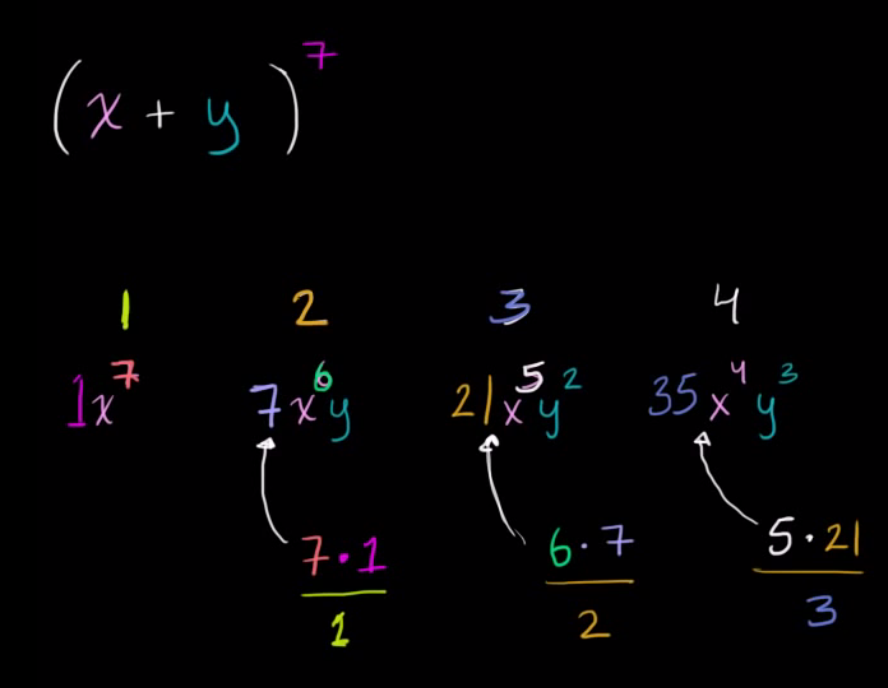 (x + y)⁷
1 2 3 4
1x⁷ 7x⁶y 21x⁵y² 35x⁴y³
7·1/1 6·7/2 5·21/3